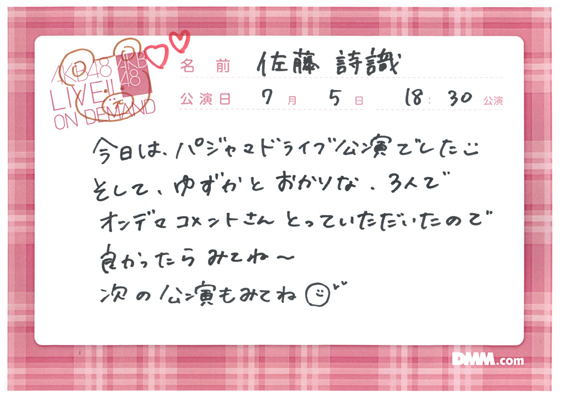 AKB48
LIVE!!
ON DEMAND
AKB
48
名前 佐藤 詩識
公演日 7月 5日 18:30公演
今日は、パジャマドライブ公演でした
そして、ゆずかと おかりな、3人で
オンデマコメントさん とっていただいたので
良かったら みてね〜
次の公演もみてね
DMM.com